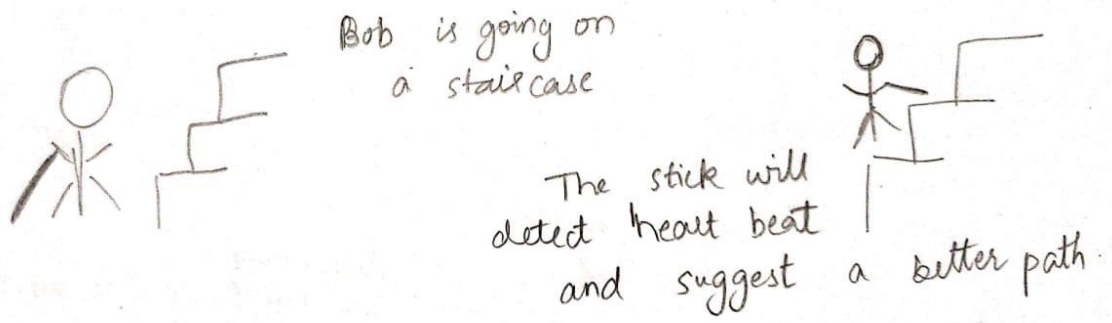 Bob is going on
a staircase
The stick will
detect heart beat
and suggest a better path.